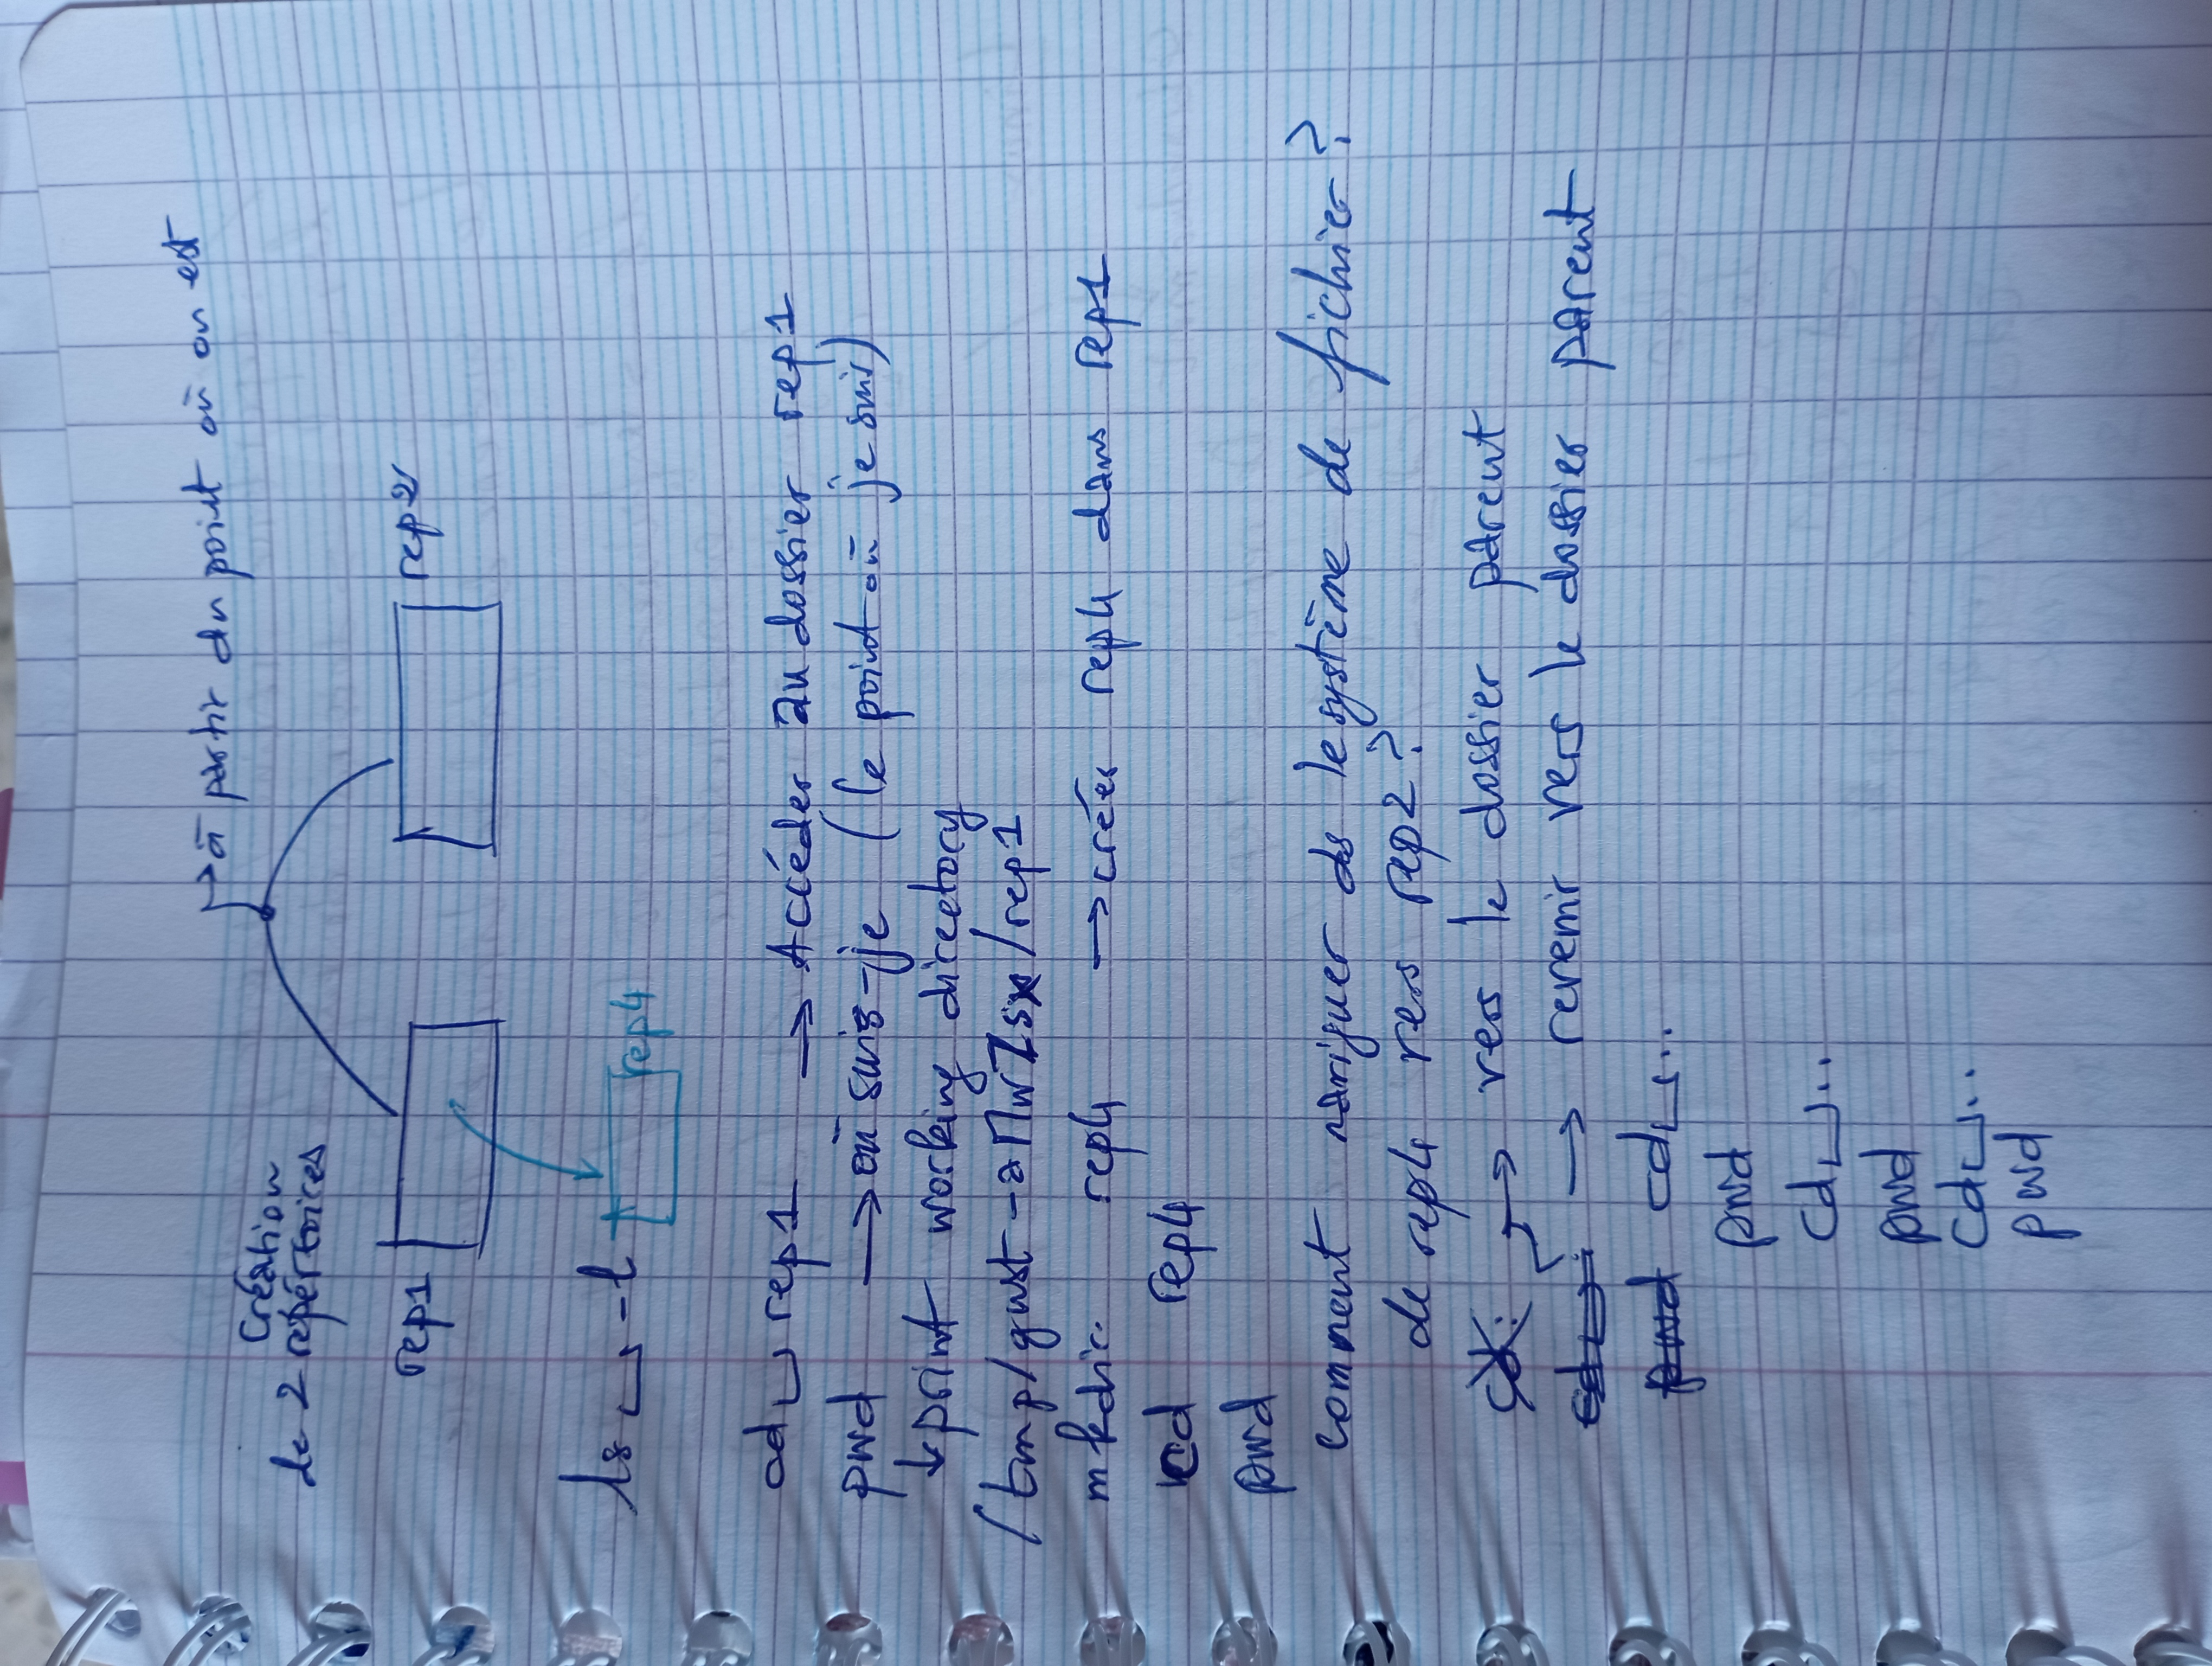 à partir du point où on est
Création
de 2 répertoires
rep1
rep2
ls ⎵ -l
rep4
cd ⎵ rep1 → Accéder au dossier rep1
pwd → où suis-je (le point où je suis)
↓ print working directory
/tmp/gwst-aMwZsx/rep1
mkdir rep4 → créer rep4 dans rep1
cd rep4
pwd
comment naviguer ds le système de fichier ?
de rep4 vers rep2 ?
cd. → vers le dossier parent
cd ⎵ . → revenir vers le dossier parent
pwd cd ⎵ ..
pwd
cd ⎵ ..
pwd
cd ⎵ ..
pwd